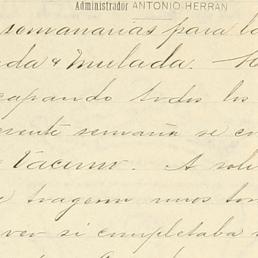 Administrador ANTONIO HERRAN
semanarias para la
da & Mulada.
capando todos los
sente semana se
Vacuno. A
tragera unos
ver si completaba